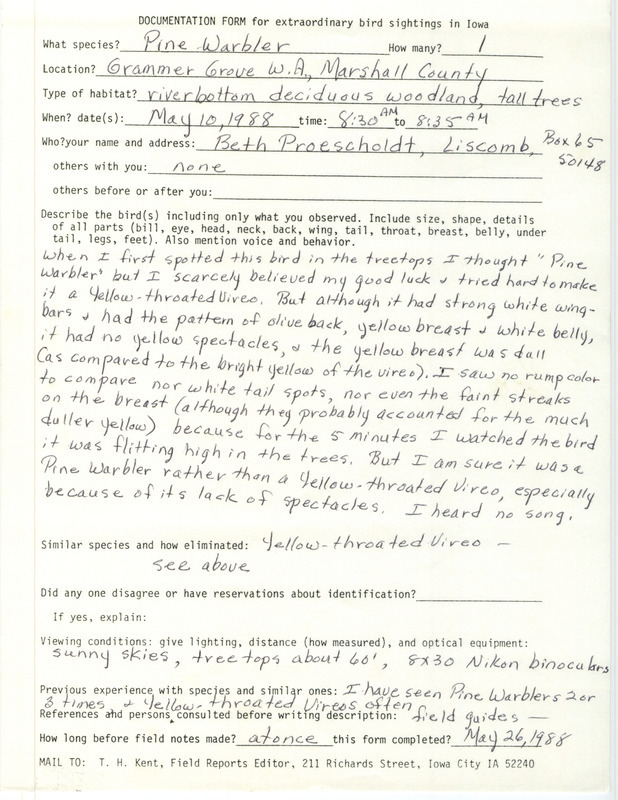 DOCUMENTATION FORM for extraordinary bird sightings in Iowa
What species? Pine Warbler How many? 1
Location? Grammer Grove W.A., Marshall County
Type of habitat? riverbottom deciduous woodland, tall trees
When? date(s): May 10, 1988 time: 8:30 AM to 8:35 AM
Who? your name and address: Beth Proescholdt, Liscomb, Box 65
50148
others with you: none
others before or after you:
Describe the bird(s) including only what you observed. Include size, shape, details
of all parts (bill, eye, head, neck, back, wing, tail, throat, breast, belly, under
tail, legs, feet). Also mention voice and behavior.
When I first spotted this bird in the treetops I thought "Pine
Warbler" but I scarcely believed my good luck & tried hard to make
it a Yellow-throated Vireo. But although it had strong white wing-
bars & had the pattern of olive back, yellow breast & white belly,
it had no yellow spectacles, & the yellow breast was dull
(as compared to the bright yellow of the vireo). I saw no rump color
to compare nor white tail spots, nor even the faint streaks
on the breast (although they probably accounted for the much
duller yellow) because for the 5 minutes I watched the bird
it was flitting high in the trees. But I am sure it was a
Pine Warbler rather than a Yellow-throated Vireo, especially
because of its lack of spectacles. I heard no song.
Similar species and how eliminated: Yellow-throated Vireo –
see above
Did any one disagree or have reservations about identification?
If yes, explain:
Viewing conditions: give lighting, distance (how measured), and optical equipment:
sunny skies, treetops about 60', 8x30 Nikon binoculars
Previous experience with species and similar ones: I have seen Pine Warblers 2 or
3 times & Yellow-throated Vireos often
References and persons consulted before writing description: field guides –
How long before field notes made? at once this form completed? May 26, 1988
MAIL TO: T. H. Kent, Field Reports Editor, 211 Richards Street, Iowa City IA 52240